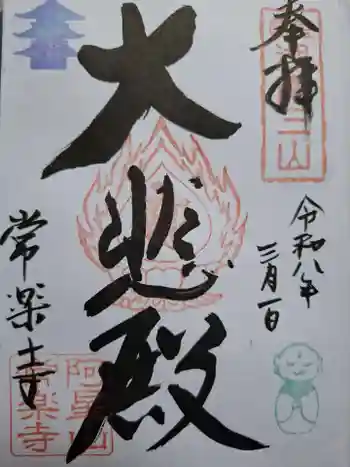 奉拝
大悲殿
令和八年
三月一日
常楽寺
阿星山
常楽寺